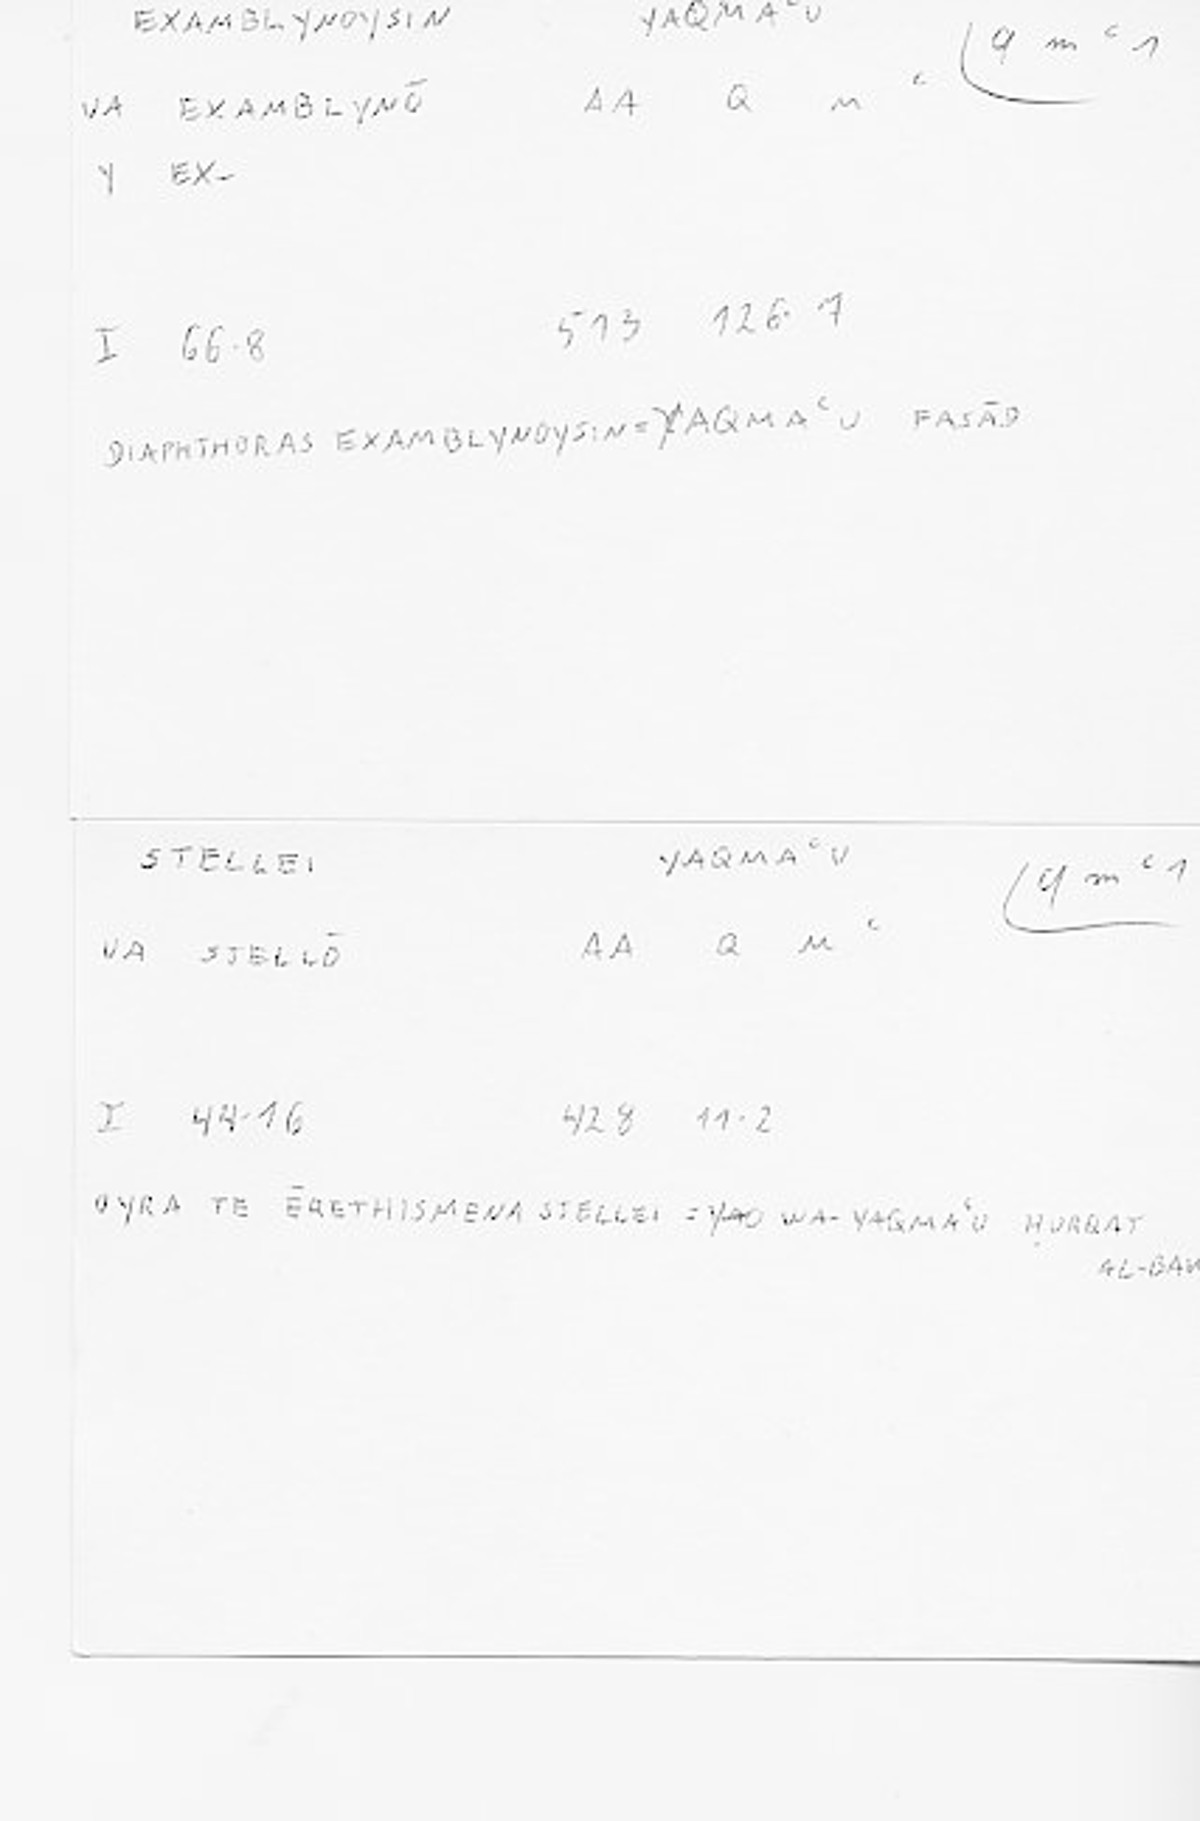 EXAMBLYNOYSIN YAQMAᶜU q m ᶜ 1
VA EXAMBLYNŌ AA Q M ᶜ
Y EX-
I 66.8 513 126.7
DIAPHTHORAS EXAMBLYNOYSIN = YAQMAᶜU FASĀD
STELLEI YAQMAᶜU q m ᶜ 1
VA STELLŌ AA Q M ᶜ
I 44.16 428 11.2
OYRA TE ĒRETHISMENA STELLEI = WA-YAQMAᶜU ḤURQAT
AL-BAW